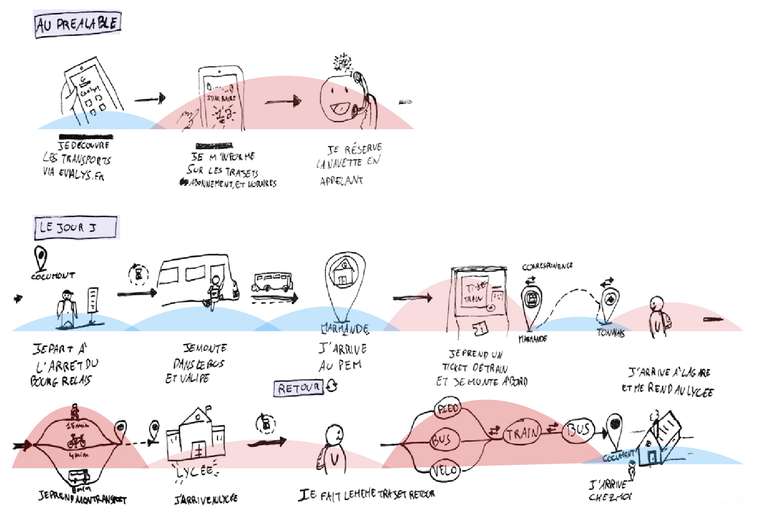 AU PREALABLE
JE DECOUVRE
LES TRANSPORTS
VIA EVALYS.FR
JE M'INFORME
SUR LES TRAJETS
ABONNEMENT, ET HORAIRES
JE RÉSERVE
LA NAVETTE EN
APPELANT
LE JOUR J
COCUMONT
JE PART À
L'ARRET DU
BOURG RELAIS
JE MONTE
DANS LE BUS
ET VALIDE
MARMANDE
J'ARRIVE
AU PEM
TICKET
TRAIN
JE PREND UN
TICKET DE TRAIN
ET JE MONTE A BORD
CORRESPONDENCE
MARMANDE
TONNEINS
J'ARRIVE À LA GARE
ET ME REND AU LYCÉE
15 min
4 min
JE PREND MON TRANSPORT
LYCÉE
J'ARRIVE AU LYCÉE
RETOUR
JE FAIT LE MEME TRAJET RETOUR
PIED
BUS
VELO
TRAIN
BUS
COCUMONT
J'ARRIVE
CHEZ MOI